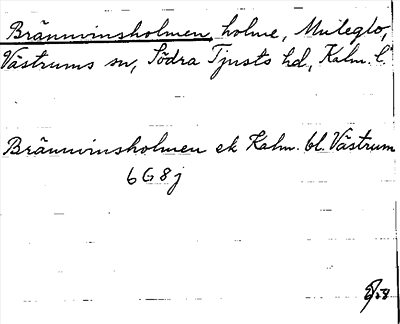 Brännvinsholmen, holme, Mu
Västrums sn, Södra Tjusts hd, Kalm. l.
Brännvinsholmen ek Kalm. bl. Västrum
6G8j